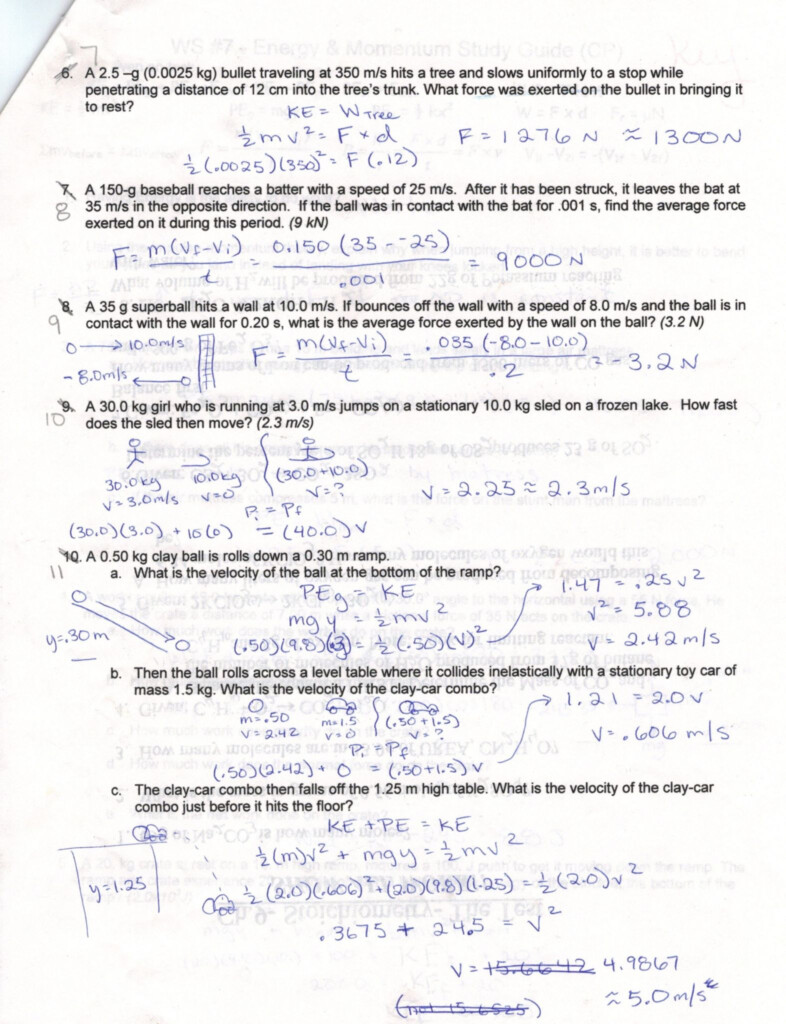 WS #7 - Energy & Momentum Study Guide (CP)
Key
7
6. A 2.5 –g (0.0025 kg) bullet traveling at 350 m/s hits a tree and slows uniformly to a stop while
penetrating a distance of 12 cm into the tree's trunk. What force was exerted on the bullet in bringing it
to rest?
KE = W Tree
½ m v² = F * d
F = 1276 N ≈ 1300 N
½ (.0025)(350)² = F (.12)
7. A 150-g baseball reaches a batter with a speed of 25 m/s. After it has been struck, it leaves the bat at
8
35 m/s in the opposite direction. If the ball was in contact with the bat for .001 s, find the average force
exerted on it during this period. (9 kN)
F = m(Vf-Vi) / t = 0.150 (35 - -25) / .001 = 9000 N
8. A 35 g superball hits a wall at 10.0 m/s. If bounces off the wall with a speed of 8.0 m/s and the ball is in
9
contact with the wall for 0.20 s, what is the average force exerted by the wall on the ball? (3.2 N)
10.0m/s
-8.0m/s
F = m(Vf-Vi) / t = .035 (-8.0 - 10.0) / .2 = -3.2 N
9. A 30.0 kg girl who is running at 3.0 m/s jumps on a stationary 10.0 kg sled on a frozen lake. How fast
10
does the sled then move? (2.3 m/s)
30.0 kg 10.0kg (30.0+10.0)
V = 3.0m/s V=0 V=?
V = 2.25 ≈ 2.3m/s
Pi = Pf
(30.0)(3.0) + 10(0) = (40.0) V
10. A 0.50 kg clay ball is rolls down a 0.30 m ramp.
11
a. What is the velocity of the ball at the bottom of the ramp?
PEg = KE
mgy = ½mv²
(.50)(9.8)(.3) = ½ (.50)(V)²
y=.30 m
1.47 = .25 v²
v² = 5.88
V = 2.42 m/s
b. Then the ball rolls across a level table where it collides inelastically with a stationary toy car of
mass 1.5 kg. What is the velocity of the clay-car combo?
m=.50 m=1.5 (.50+1.5)
V=2.42 V=0 V=?
Pi = Pf
(.50)(2.42) + 0 = (.50+1.5) V
1.21 = 2.0 V
V = .606 m/s
c. The clay-car combo then falls off the 1.25 m high table. What is the velocity of the clay-car
combo just before it hits the floor?
KE + PE = KE
½(m)v² + mgy = ½mv²
y=1.25
½ (2.0)(.606)² + (2.0)(9.8)(1.25) = ½ (2.0) v²
.3675 + 24.5 = v²
V = 15.6642 4.9867
(not 15.6525) ≈ 5.0m/s